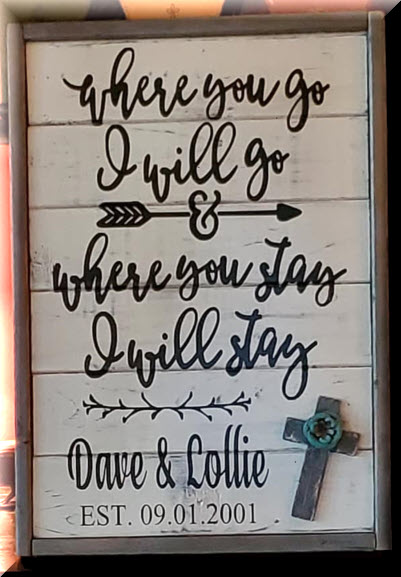 where you go
I will go
&
where you stay
I will stay
Dave & Lollie
EST. 09.01.2001